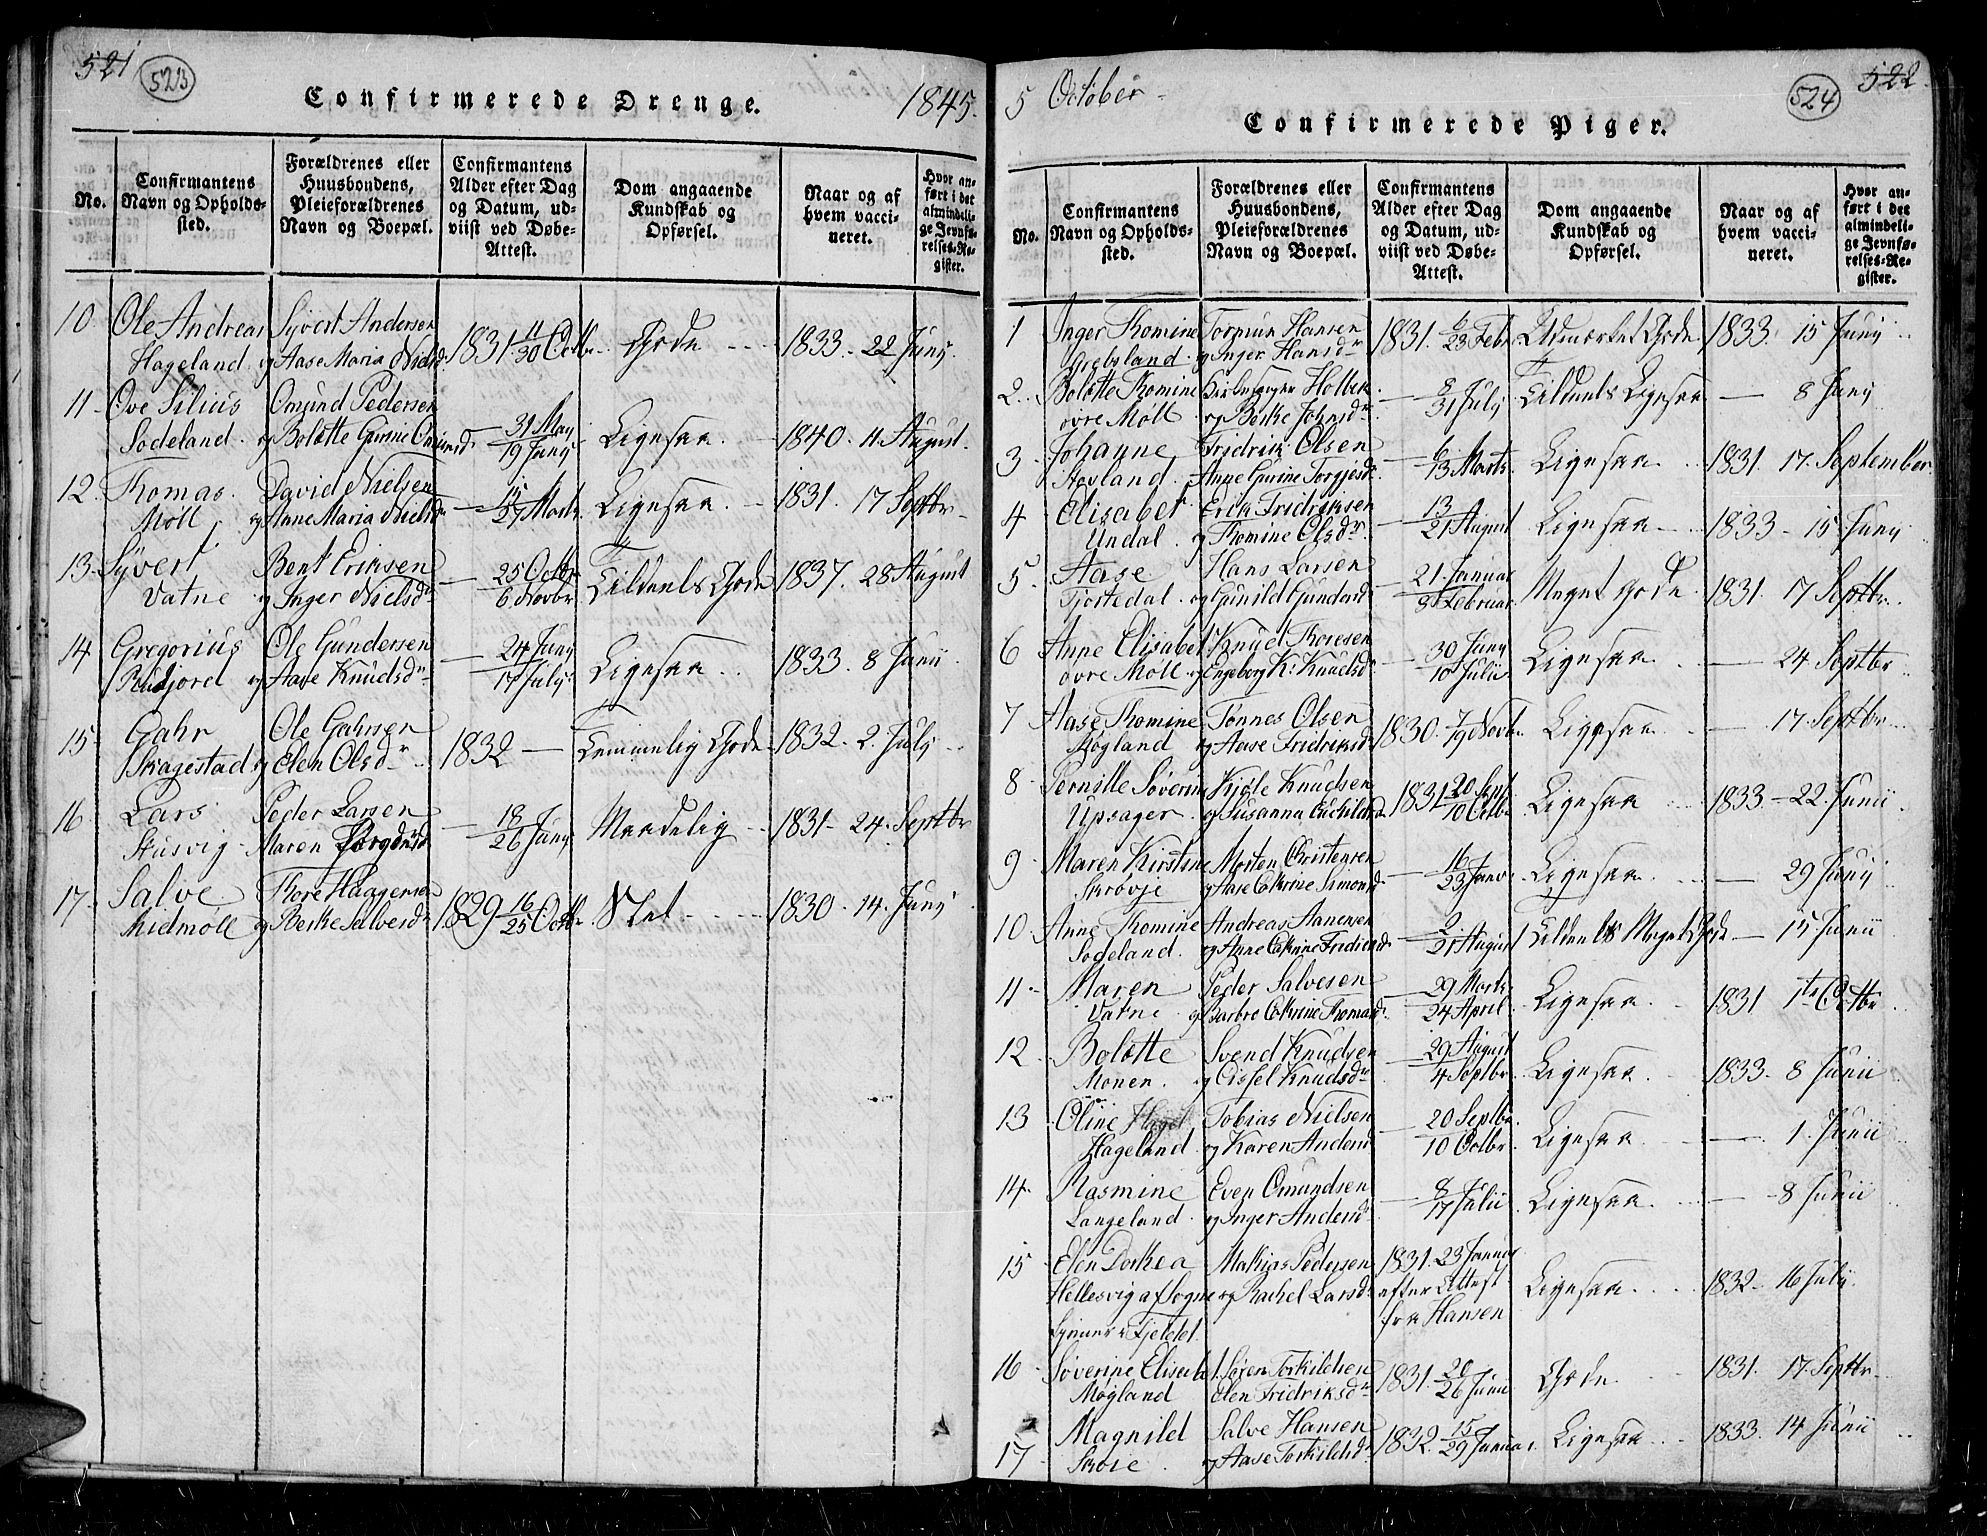 521
523
Confirmerede Drenge.
1845.
No.
Confirmantens Navn og Opholdssted.
Forældrenes eller Huusbondens, Pleieforældrenes Navn og Boepæl.
Confirmantens Alder efter Dag og Datum, udviist ved Døbe-Attest.
Dom angaaende Kundskab og Opførsel.
Naar og af hvem vaccineret.
Hvor anført i det almindelige Jevnførelses-Register.
10 Ole Andreas Syvert Andersen 1831 11/30 Octbr. Gode 1833. 22 Juny.
Hageland og Aase Maria Nielsd.
11 Ove Silius Omund Pedersen 31 May/19 Juny Ligesaa. 1840. 11. August.
Sodeland. og Bolætte Gurine Omundsd.
12. Thomas. David Nielsen 15/27 Marts Ligesaa. 1831. 17 Septbr
Möll og Anne Maria Nielsd.
13. Syvert Bent Eriksen 25 Octbr/6 Novbr Tildeels Gode 1837. 28 August
Vatne og Inger Nielsdr
14 Gregorius Ole Gundersen 24 Juny/17 July Ligesaa. 1833. 8 Junii.
Rudjord og Aase Knudsdr
15 Gahr Ole Gahrsen 1832 Temmelig Gode 1832. 2. July
Skagestad og Elen Olsdr
16 Lars Peder Larsen 18/26 Juny Maadelig 1831 - 24. Septbr
Skusvig Maren
17. Salve Thore Haagensen 1829 16/25 Octbr. Slet 1830. 14. Juny
Midmöll og Berthe Salvesdr
5 October
524
522
Confirmerede Piger.
No.
Confirmantens Navn og Opholdssted.
Forældrenes eller Huusbondens, Pleieforældrenes Navn og Boepæl.
Confirmantens Alder efter Dag og Datum, udviist ved Døbe-Attest.
Dom angaaende Kundskab og Opførsel.
Naar og af hvem vaccineret.
Hvor anført i det almindelige Jevnførelses-Register.
1 Inger Thomine Tormun Hansen 1831. 6/23 Febr. Udmærket Gode 1833. 15 Juny
Grebsland. og Inger Hansdr
2. Bolætte Thomine Holbek 8/31 July Tildeels Ligesaa 8 Juny
övre Möll og Berthe Johnsdr
3 Johanne Fridrik Olsen 6/13 Marts Ligesaa. 1831. 17. September
Stovland. Anne Gurine Torgiesd.
4 Elisabet Erik Fridriksen 13/21 August Ligesaa 1833 - 15 Juny
Undal. og Thomine Olsdr.
5. Aase Hans Larsen 21. Januar/ Februar. Meget Gode. 1831. 17 Septbr.
Tjostedal. og Gunild Gundersd
6 Anne Elisabet Knud Thoresen 30 Juny/10 Julii Ligesaa 24 Septbr
övre Möll og Engeborg K: Knudsdr
7 Aase Thomine Tønnes Olsen 1830. 7/ Novbr Ligesaa. 17. Septbr
Høgland og Aase Fridriksd
8 Pernille Søverine Kjøle Knudsen 1831 20 Sept/10 Octbr Ligesaa 1833 - 22. Junii
Upsager. og Susanna
9 Maren Kirstine Morten Christensen 16/23 Janv. Ligesaa. 29 Junij
Skrövje og Aase Cathrine Simonsd
10. Anne Thomine Andreas Aanensen 2/21 August Tildeels Meget Gode 15 Junii
Sodeland. og Anne Cathrine Fredriksd.
11 Maren Peder Salvesen 29 Marts/24 April. Ligesaa 1831 1te Octbr
Vatne og Barbro Cathrine Thomasd.
12 Bolætte Svend Knudsen 29 August/4 Septbr. Ligesaa. 1833. 8 Junii
Monen. og Cissel Knudsdr
13 Oline Tobias Nielsen 20 Septbr/10 Octbr. Ligesaa 1. Junii
Hageland. og Karen Andersd
14. Rasmine Even Omundsen 8/17 Julii Ligesaa. 8 Junii
Langeland. og Inger Andersd
15 Elen Dorthea Mathias Pedersen 1831. 23 Januar Ligesaa. 1832 - 16 July.
Hellesvig af Sogne og Rachel Larsd. efter Attest
fra Hansen
16 Søverine Elisabet Søren Torkildsen 1831. 20/26 Junii Gode 1831. 17. Septbr
Møgland Elen Fridriksdr
17 Magnild Salve Hansen 1832. 15/29 Januar. Ligesaa 1833. 14 Junii
Skoie. og Aase Torkildsd